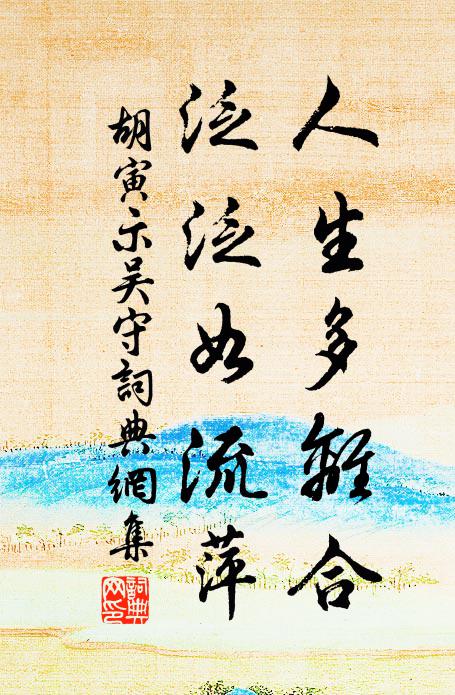 人生多離合
泛泛如流萍
胡寅示吴守詞典網集
詞典網印